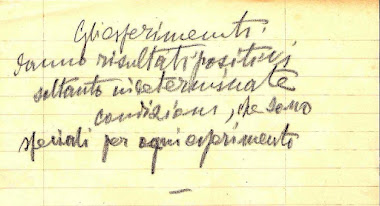 Gli esperimenti
danno risultati positivi
soltanto in determinate
condizioni, che sono
speciali per ogni esperimento